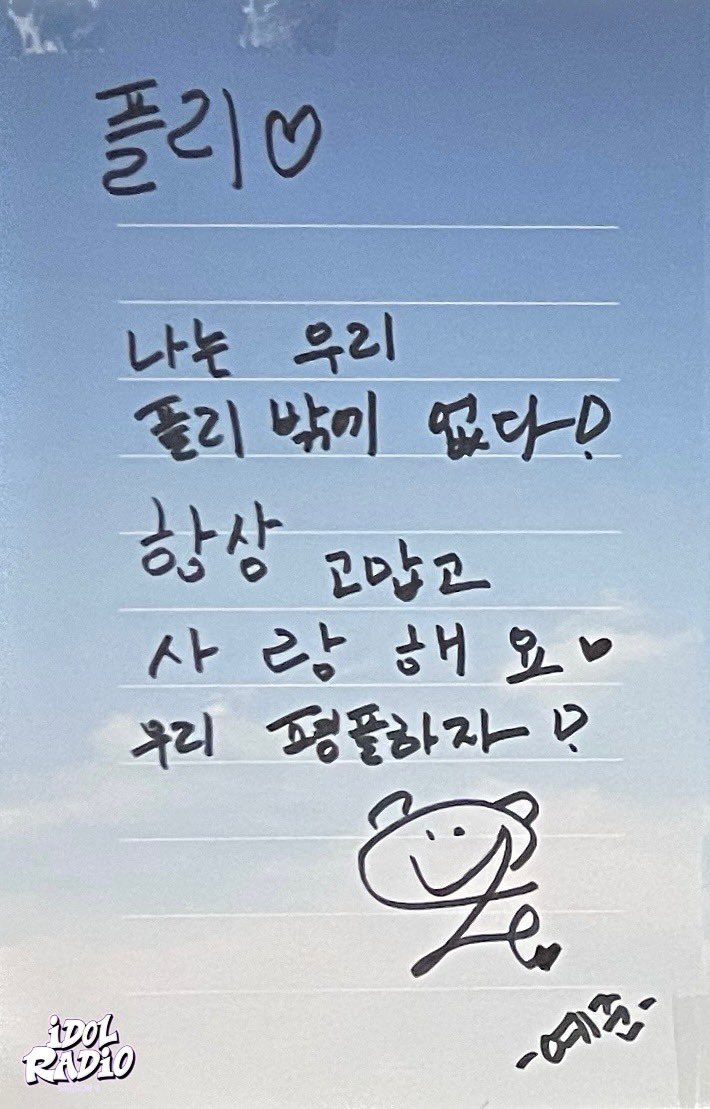 플리♡
나는 우리
플리 밖에 없다!
항상 고맙고
사랑해요♥
우리 평플하자!
-예준-
iDOL
RADiO